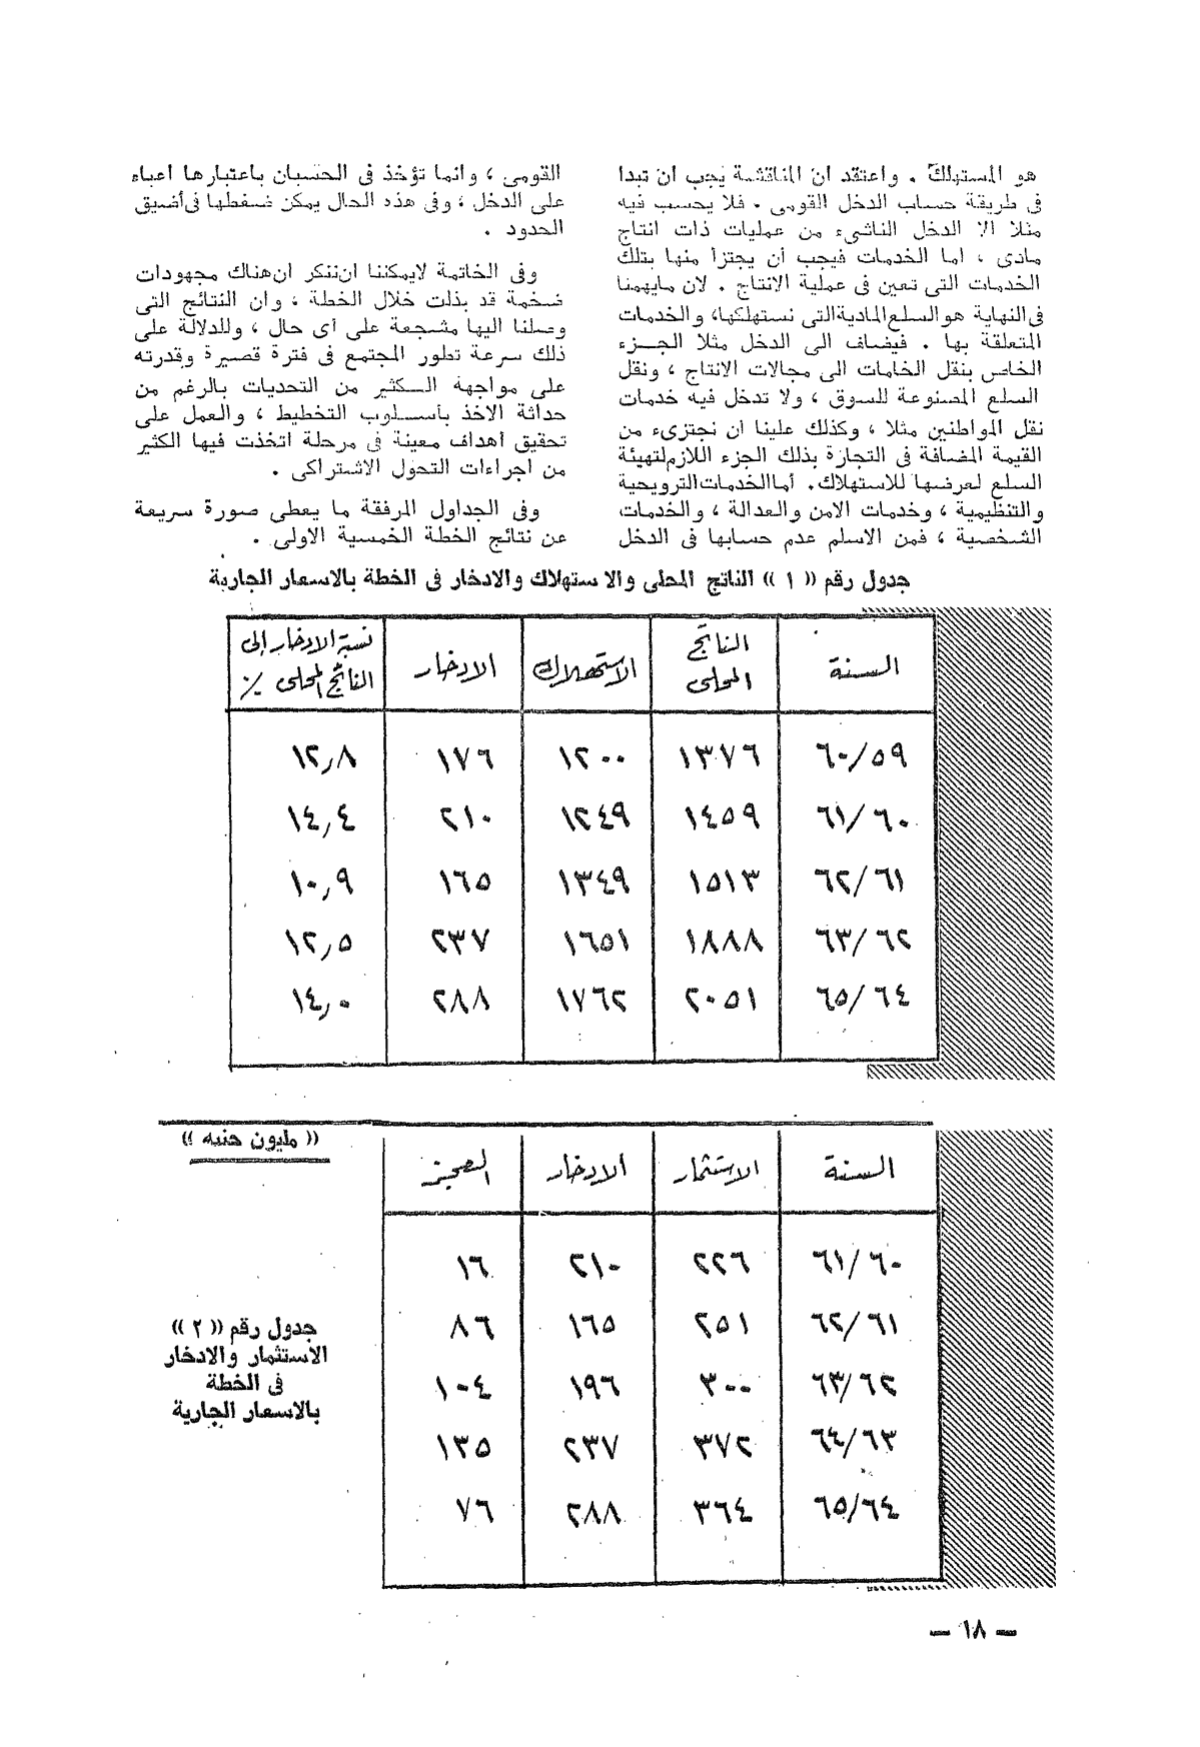 هو المستهلك . واعتقد ان المناقشة يجب ان تبدا
فى طريقة حساب الدخل القومى . فلا يحسب فيه
مثلا الا الدخل الناشىء من عمليات ذات انتاج
مادى ، اما الخدمات فيجب أن يجتزأ منها بتلك
الخدمات التى تعين فى عملية الانتاج . لان مايهمنا
فى النهاية هو السلع المادية التى نستهلكها، والخدمات
المتعلقة بها . فيضاف الى الدخل مثلا الجزء
الخاص بنقل الخامات الى مجالات الانتاج ، ونقل
السلع المصنوعة للسوق ، ولا تدخل فيه خدمات
نقل المواطنين مثلا ، وكذلك علينا ان نجتزىء من
القيمة المضافة فى التجارة بذلك الجزء اللازم لتهيئة
السلع لعرضها للاستهلاك. أما الخدمات الترويحية
والتنظيمية ، وخدمات الامن والعدالة ، والخدمات
الشخصية ، فمن الاسلم عدم حسابها فى الدخل
القومى ، وانما تؤخذ فى الحسبان باعتبارها اعباء
على الدخل ، وفى هذه الحال يمكن ضغطها فى أضيق
الحدود .
وفى الخاتمة لايمكننا ان ننكر ان هناك مجهودات
ضخمة قد بذلت خلال الخطة ، وان النتائج التى
وصلنا اليها مشجعة على أى حال ، وللدلالة على
ذلك سرعة تطور المجتمع فى فترة قصيرة وقدرته
على مواجهة الكثير من التحديات بالرغم من
حداثة الاخذ بأسلوب التخطيط ، والعمل على
تحقيق أهداف معينة فى مرحلة اتخذت فيها الكثير
من اجراءات التحول الاشتراكى .
وفى الجداول المرفقة ما يعطى صورة سريعة
عن نتائج الخطة الخمسية الاولى .
جدول رقم (( ١ )) الناتج المحلى والاستهلاك والادخار فى الخطة بالاسعار الجارية
السنة الناتج المحلى الاستهلاك الادخار نسبة الادخار إلى الناتج المحلى ٪
٦٠/٥٩ ١٣٧٦ ١٢٠٠ ١٧٦ ١٢٫٨
٦١/٦٠ ١٤٥٩ ١٢٤٩ ٢١٠ ١٤٫٤
٦٢/٦١ ١٥١٣ ١٣٤٩ ١٦٥ ١٠٫٩
٦٣/٦٢ ١٨٨٨ ١٦٥١ ٢٣٧ ١٢٫٥
٦٥/٦٤ ٢٠٥١ ١٧٦٢ ٢٨٨ ١٤٫٠
(( مليون جنيه ))
السنة الاستثمار الادخار العجز
٦١/٦٠ ٢٢٦ ٢١٠ ١٦
٦٢/٦١ ٢٥١ ١٦٥ ٨٦
٦٣/٦٢ ٣٠٠ ١٩٦ ١٠٤
٦٤/٦٣ ٣٧٢ ٢٣٧ ١٣٥
٦٥/٦٤ ٣٦٤ ٢٨٨ ٧٦
جدول رقم (( ٢ ))
الاستثمار والادخار
فى الخطة
بالاسعار الجارية
— ١٨ —